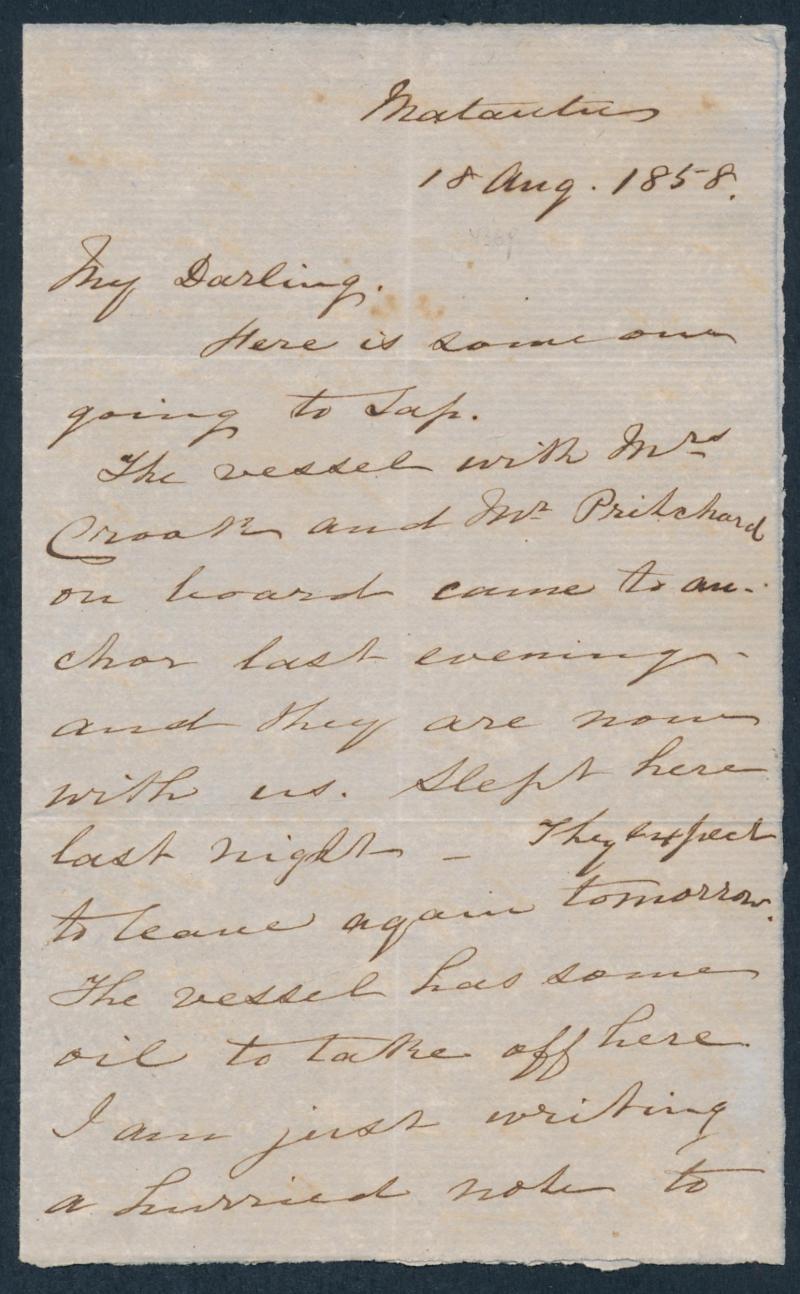 Matautu
18 Aug. 1858.
My Darling.
Here is some one
going to Sap.
The vessel with Mrs
Crook and Mr Pritchard
on board came to an-
chor last evening -
and they are now
with us. Slept here
last night - They expect
to leave again tomorrow.
The vessel has some
oil to take off here
I am just writing
a hurried note to